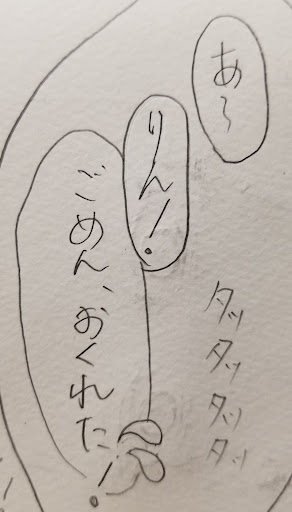 あ～
りんー!
ごめん、おくれた!
タッ
タッ
タッ
タッ